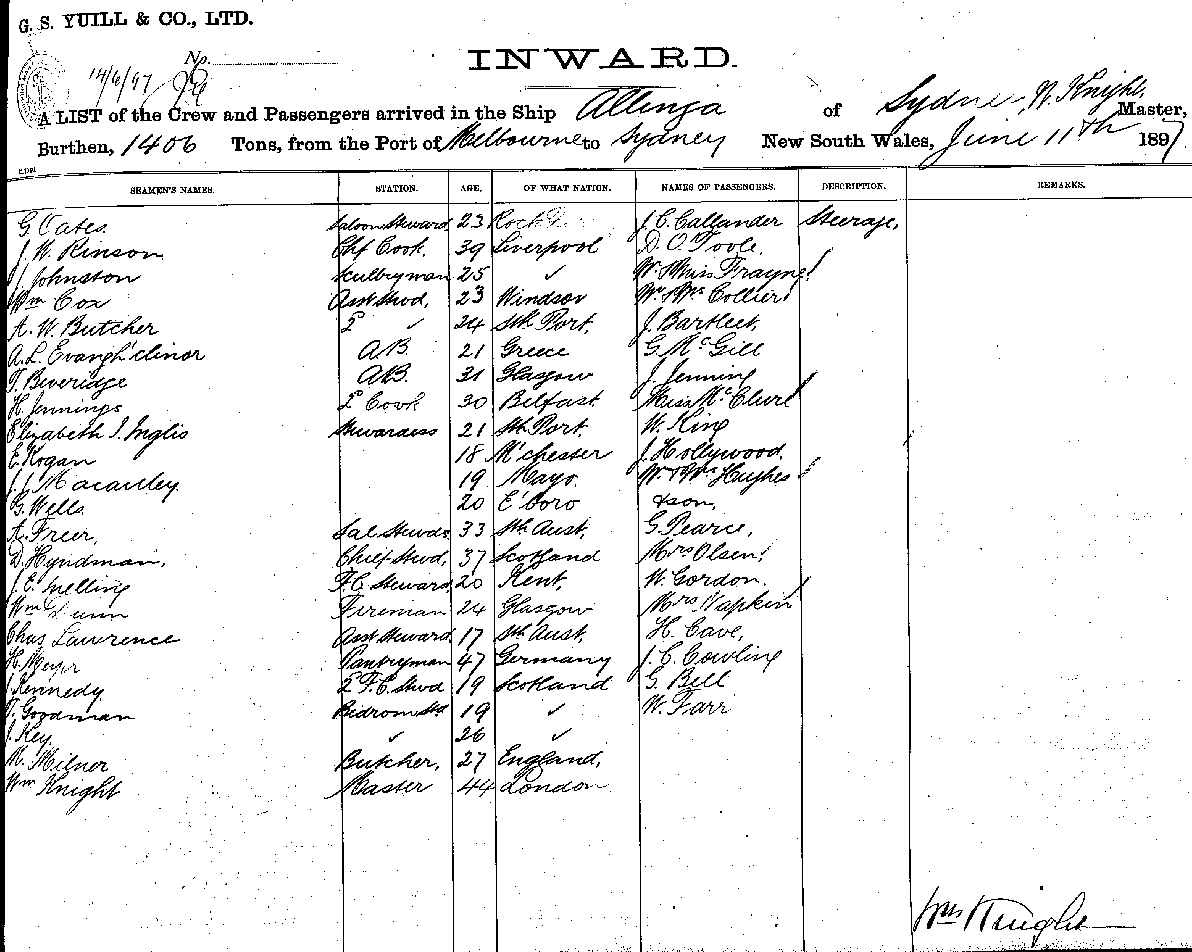 G. S. YUILL & CO., LTD.
No.
14/6/97
INWARD.
A LIST of the Crew and Passengers arrived in the Ship Allinga of Sydney, W. Knight, Master,
Burthen, 1406 Tons, from the Port of Melbourne to Sydney New South Wales, June 11th 1897
SEAMEN'S NAMES. STATION. AGE. OF WHAT NATION. NAMES OF PASSENGERS. DESCRIPTION. REMARKS.
G. Oates. Saloon Steward 23 J. C. Callander Steerage,
J. W. Rinson Chf Cook. 39 Liverpool D. O'Toole.
J. Johnston Scullryman 25 " Mr & Miss Frayne
Wm Cox Asst Stwd, 23 Windsor Mr & Mrs Collier
A. W. Butcher 2 " 24 Sth Port. J. Bartlett,
A. L. A.B. 21 Greece G. McGill
T. Beveridge A.B. 31 Glasgow J. Jenning
H. Jennings 2 Cook 30 Belfast Miss McClure
Elizabeth I. Inglis Stewardess 21 Sth Port. W. King
E. Kogan 18 M'chester J. Hollywood.
J. J. Macauley 19 Mayo. Mr & Mrs Hughes
G. Wells 20 E'boro & son,
A. Freer, Sal. Stwds 33 Sth Aust, G. Pearce,
D. Hyndman, Chief Stwd, 37 Scotland Mrs Olsen
J. E. Snelling F.C. Steward 20 Kent, W. Gordon.
Wm Gunn Fireman 24 Glasgow Mrs Napkin
Chas Lawrence Asst Steward, 17 Sth Aust, H. Cave,
H. Meyer Pantryman 47 Germany J. C. Cowling
J. Kennedy 2 F.C. Stwd 19 Scotland G. Bell
T. Goodman Bedroom Std 19 " W. Farr
J. Key " 26 "
M. Milner Butcher, 27 England,
Wm Knight Master 44 London
Wm Knight